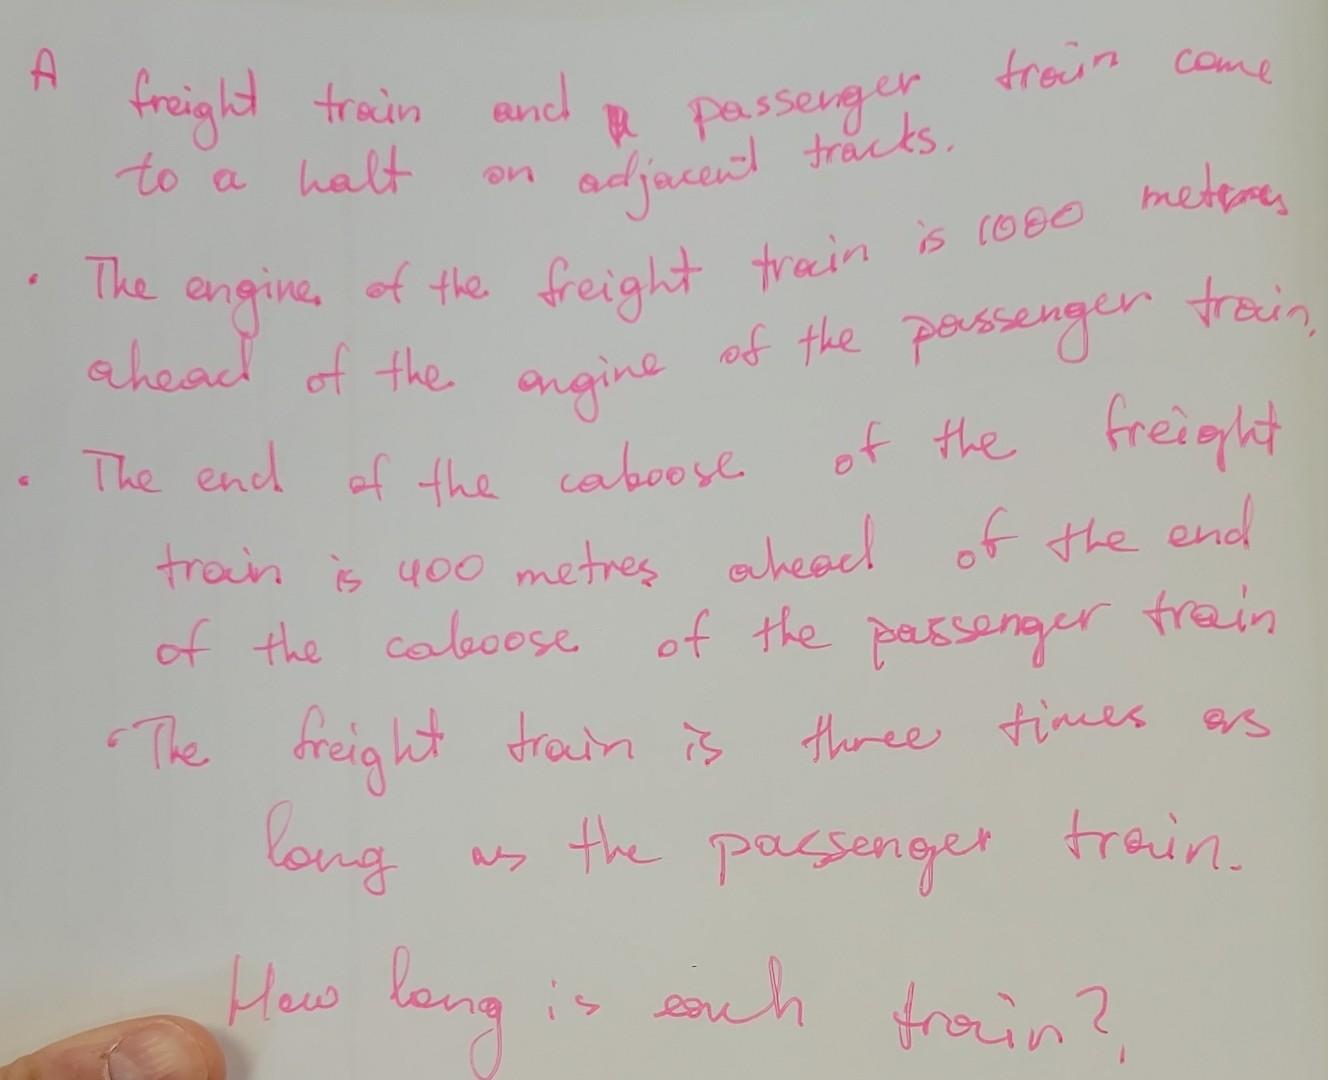 A freight train and a passenger train come
to a halt on adjacent tracks.
• The engine of the freight train is 1000 metres
ahead of the engine of the passenger train.
• The end of the caboose of the freight
train is 400 metres ahead of the end
of the caboose of the passenger train
• The freight train is three times as
long as the passenger train.
How long is each train?